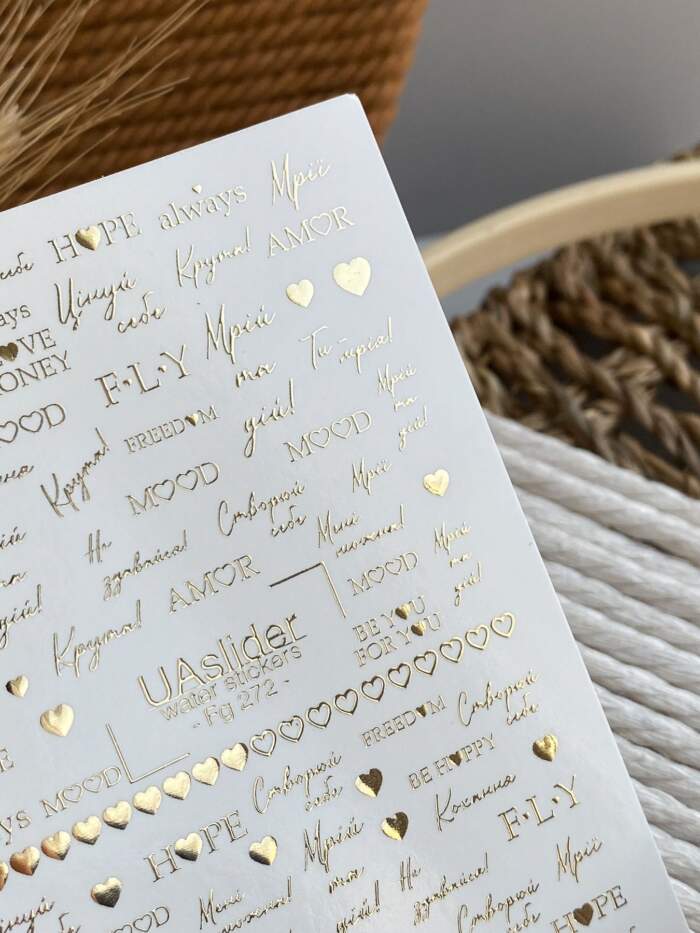 HOPE always Мрії
себе Цінуй себе Крута! AMOR
LOVE
MONEY
F·L·Y Мрій та дій! Ти - мрія!
MOOD
Крута! FREEDOM MOOD Мрій та дій!
MOOD Створюй себе Мрії
Не здавайся! Мені можна!
дій! Крута! AMOR MOOD Мрій та дій!
UAslider
water stickers
- Fg 272 -
BE YOU
FOR YOU
MOOD FREEDOM Створюй себе
Створюй себе BE HAPPY
HOPE Мрій та дій! Кохана F·L·Y
Цінуй себе MOOD Мені можна! Не здавайся! Мрії
Створюй себе HOPE